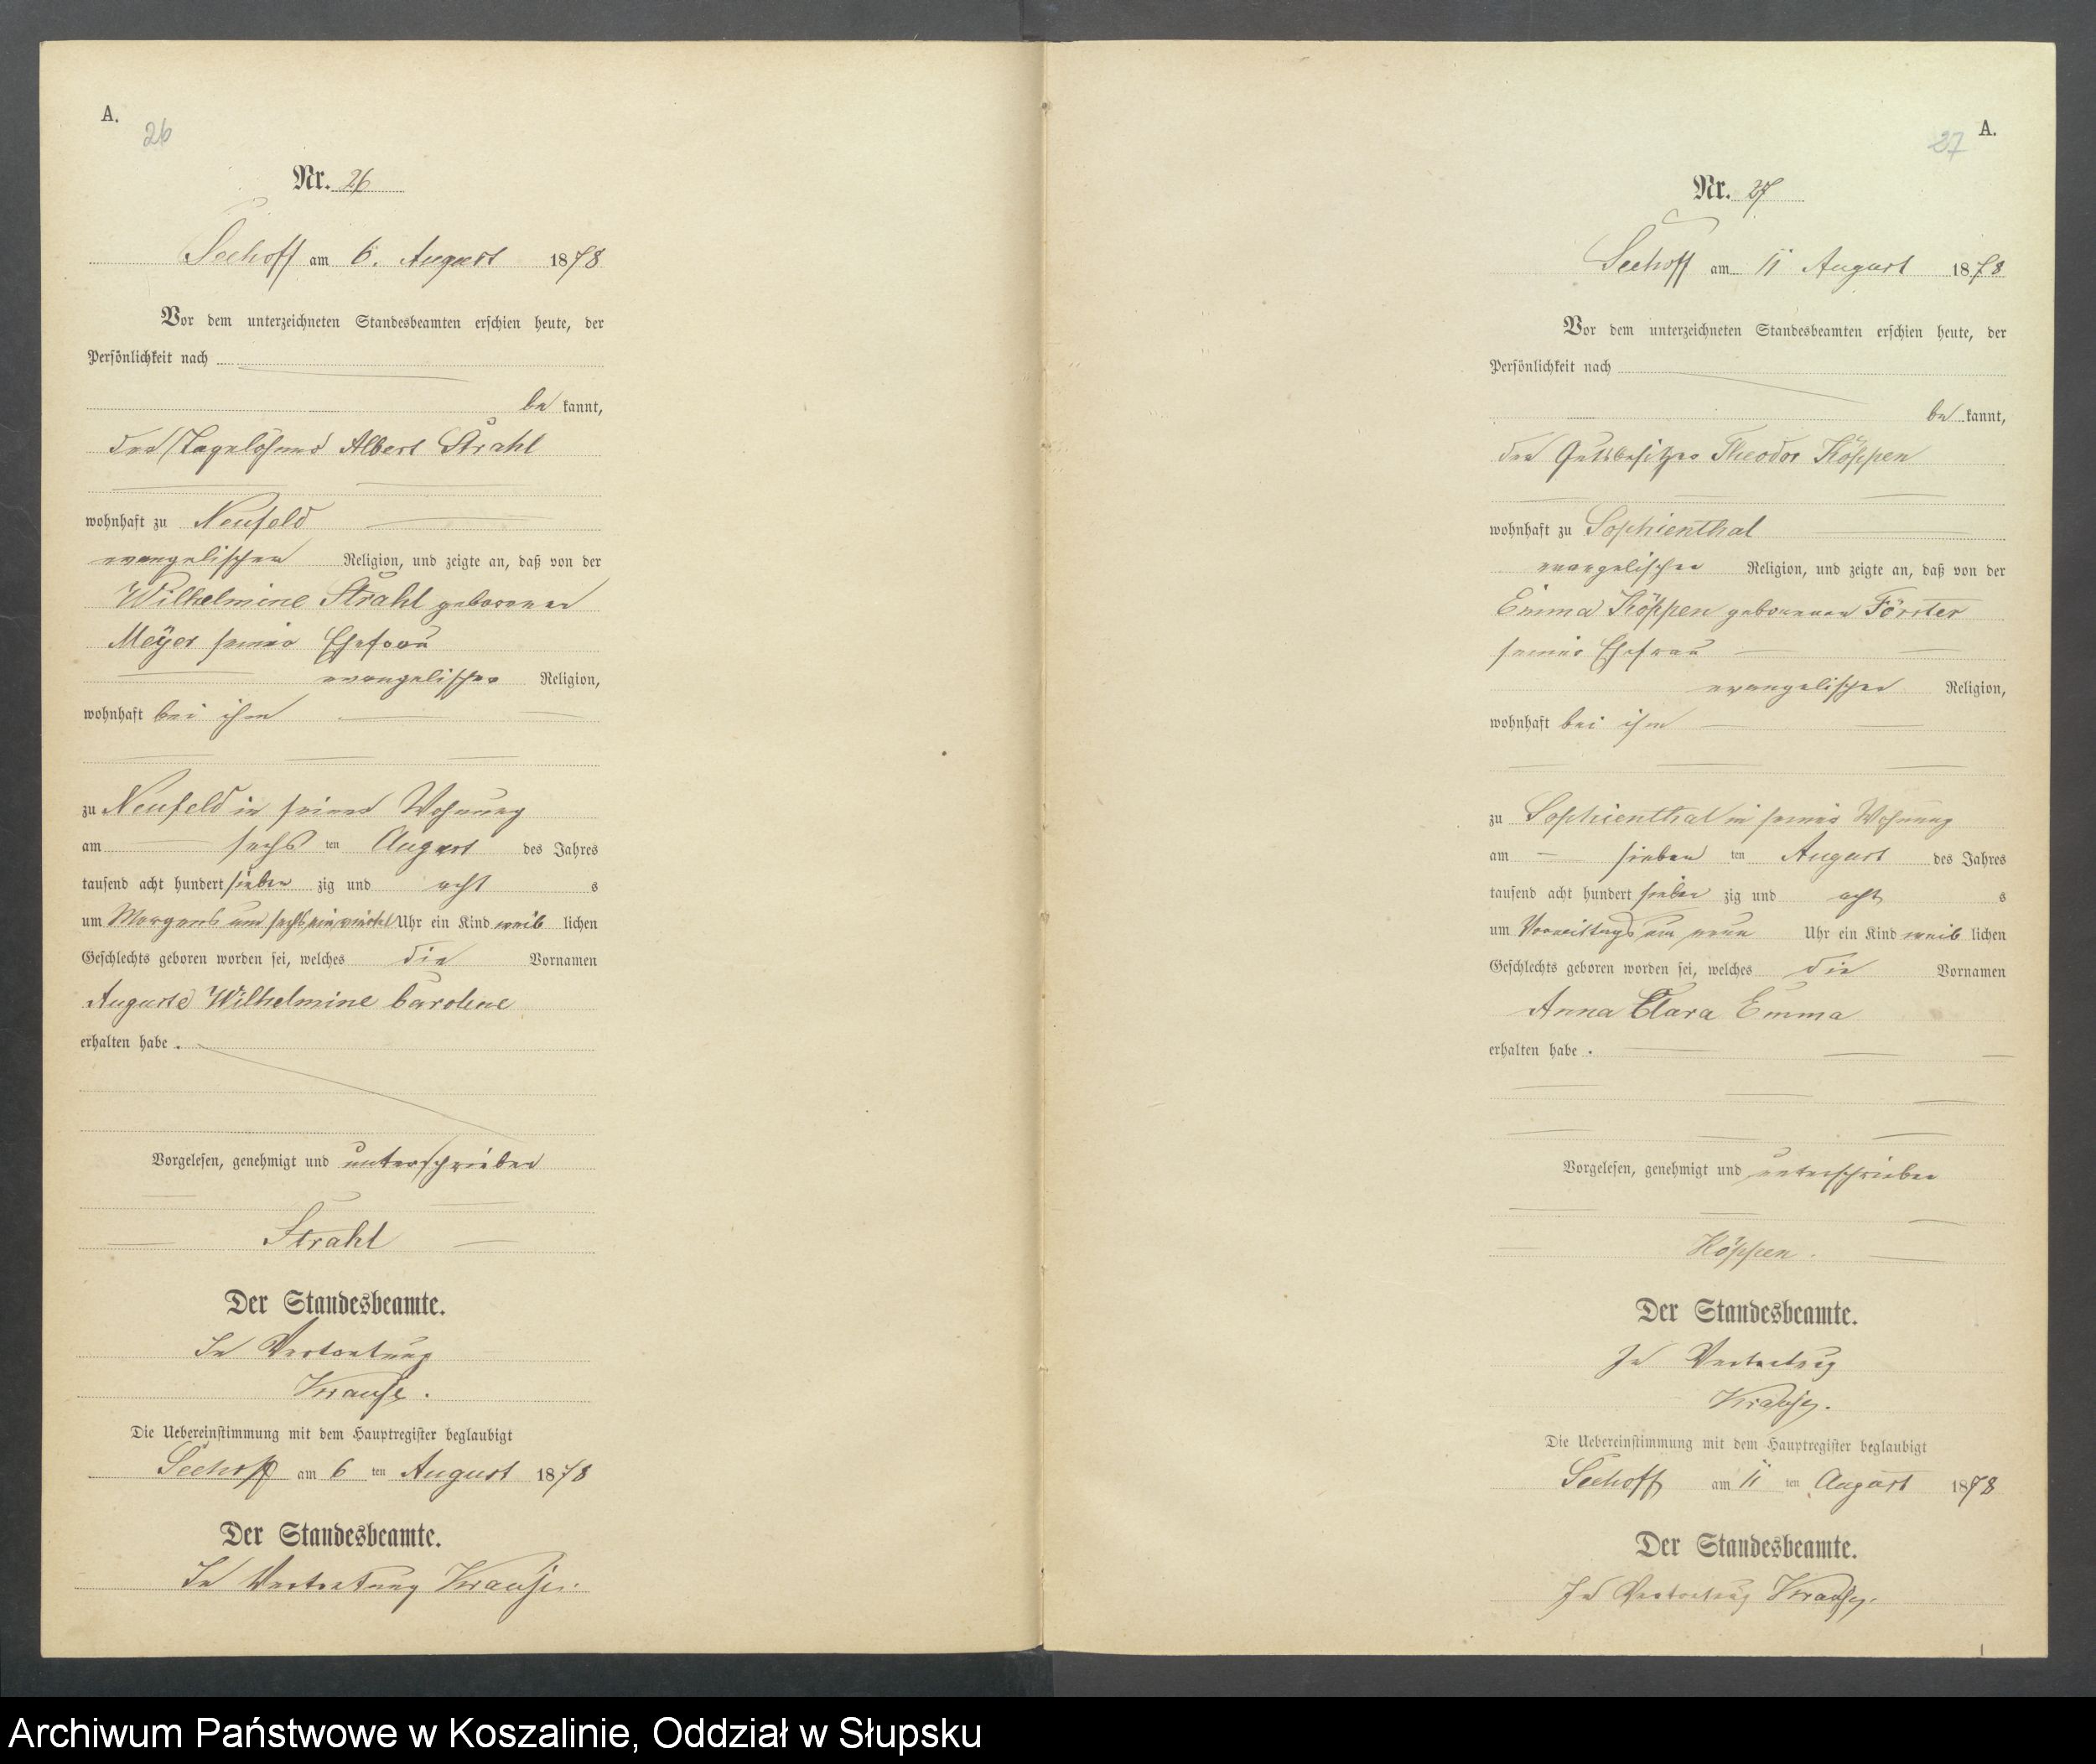 A.
26
Nr. 26
Seehoff am 6. August 1878
Vor dem unterzeichneten Standesbeamten erschien heute, der
Persönlichkeit nach
be kannt,
der Tagelöhner Albert Strahl
wohnhaft zu Neufeld
evangelischer Religion, und zeigte an, daß von der
Wilhelmine Strahl geborenen
Meÿer seiner Ehefrau
evangelischer Religion,
wohnhaft bei ihm
zu Neufeld in seiner Wohnung
am sechs ten August des Jahres
tausend acht hundert sieben zig und acht s
um Morgens um sechs ein viertel Uhr ein Kind weib lichen
Geschlechts geboren worden sei, welches die Vornamen
Auguste Wilhelmine Caroline
erhalten habe.
Vorgelesen, genehmigt und unterschrieben
Strahl
Der Standesbeamte.
In Vertretung
Krause.
Die Uebereinstimmung mit dem Hauptregister beglaubigt
Seehoff am 6 ten August 1878
Der Standesbeamte.
In Vertretung Krause.
A.
27
Nr. 27
Seehoff am 11 August 1878
Vor dem unterzeichneten Standesbeamten erschien heute, der
Persönlichkeit nach
be kannt,
der Gutsbesitzer Theodor Köppen
wohnhaft zu Sophienthal
evangelischer Religion, und zeigte an, daß von der
Emma Köppen geborenen Förster
seiner Ehefrau
evangelischer Religion,
wohnhaft bei ihm
zu Sophienthal in seiner Wohnung
am sieben ten August des Jahres
tausend acht hundert sieben zig und acht s
um Vormittags um neun Uhr ein Kind weib lichen
Geschlechts geboren worden sei, welches die Vornamen
Anna Clara Emma
erhalten habe.
Vorgelesen, genehmigt und unterschrieben
Köppen.
Der Standesbeamte.
In Vertretung
Krause.
Die Uebereinstimmung mit dem Hauptregister beglaubigt
Seehoff am 11 ten August 1878
Der Standesbeamte.
In Vertretung Krause.
Archiwum Państwowe w Koszalinie, Oddział w Słupsku